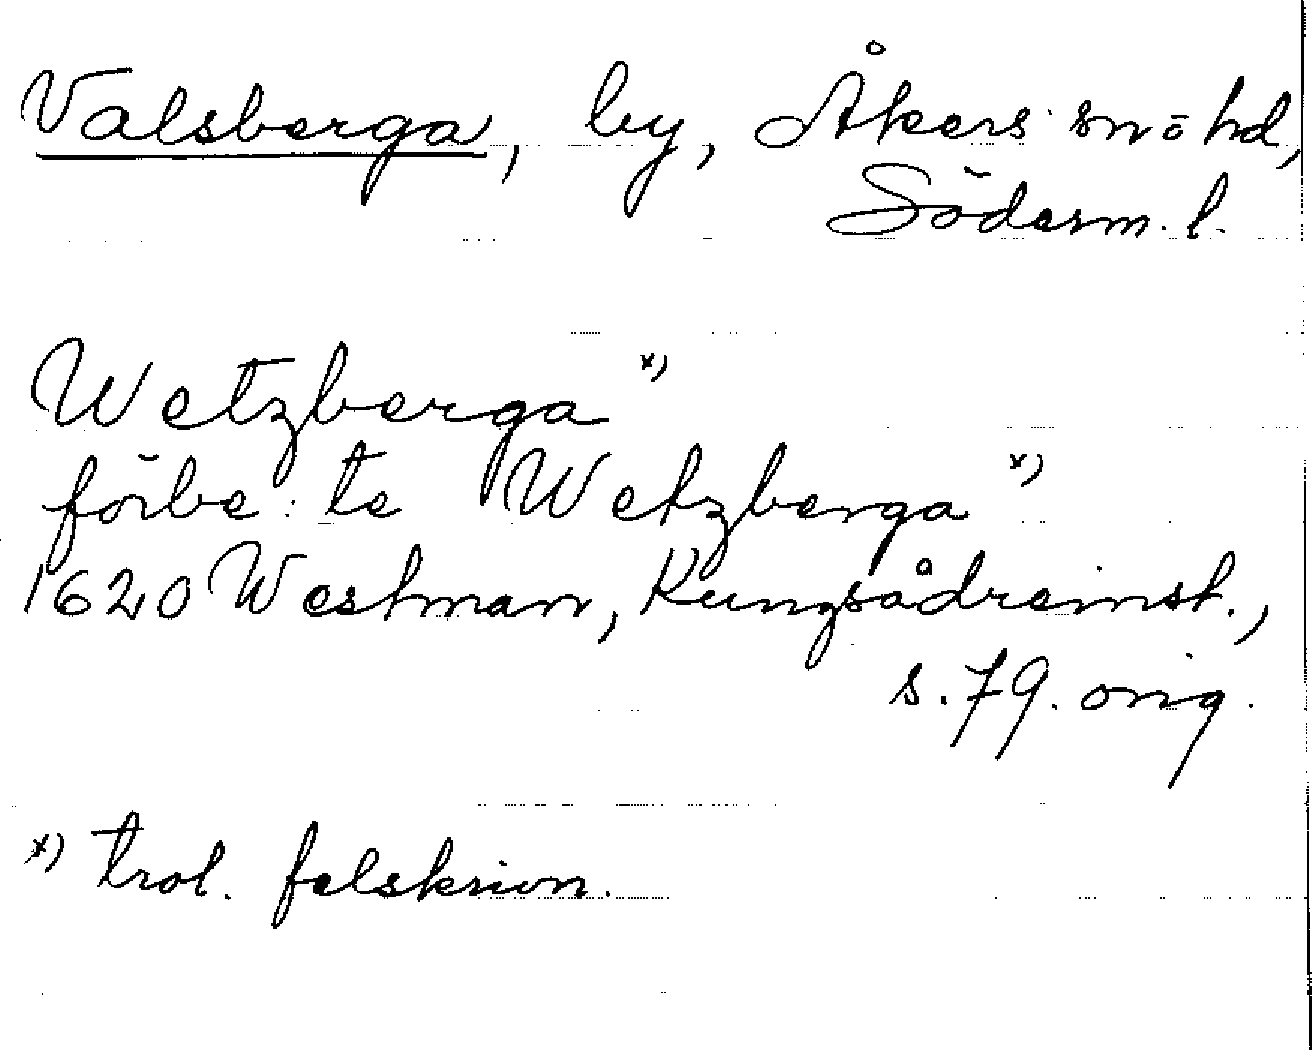 Valsberga, by, Åkers sn ö hd,
Söderm. l.
Wetzberga x)
förbe: te Wetzberga x)
1620 Westman, Kungsådreinst.,
s. 79. orig.
x) trol. felskrivn.